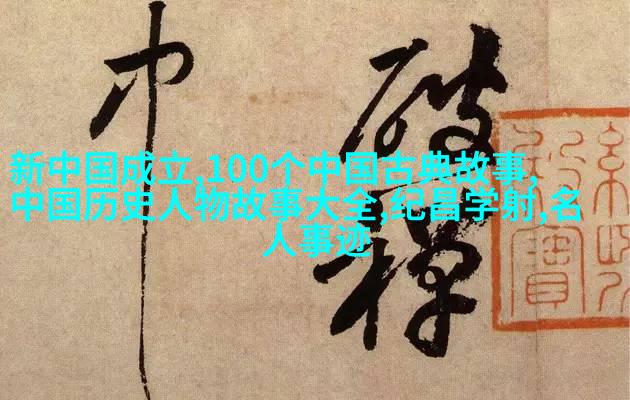 新中国成立,100个中国古典故事,
中国历史人物故事大全,纪昌学射,名
人事迹